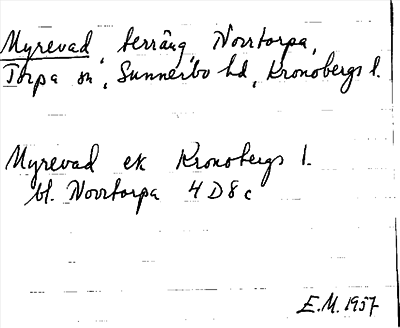 Myrevad, terräng, Norrtorpa,
Torpa sn, Sunnerbo hd, Kronobergs l.
Myrevad ek Kronobergs l.
bl. Norrtorpa 4 D 8 c
E.M. 1957